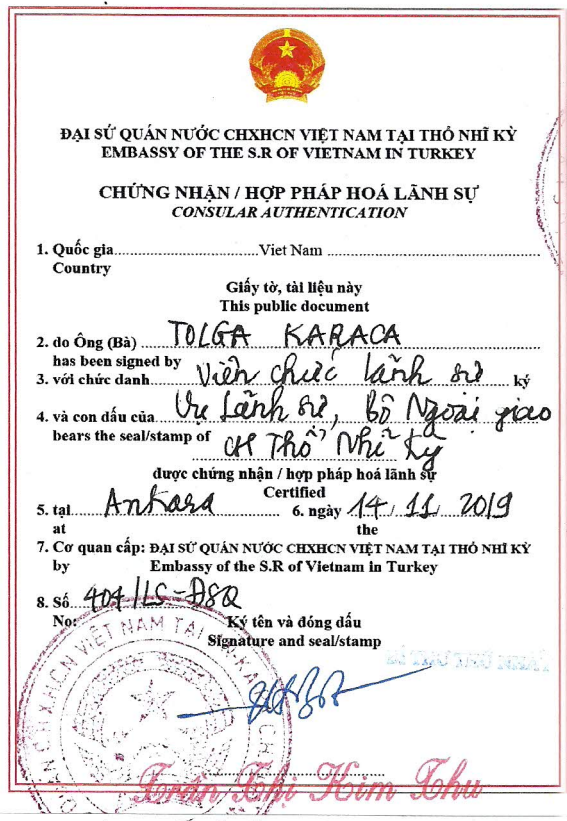 ĐẠI SỨ QUÁN NƯỚC CHXHCN VIỆT NAM TẠI THỔ NHĨ KỲ
EMBASSY OF THE S.R OF VIETNAM IN TURKEY
CHỨNG NHẬN / HỢP PHÁP HOÁ LÃNH SỰ
CONSULAR AUTHENTICATION
1. Quốc gia..............................Viet Nam ..............................
Country
Giấy tờ, tài liệu này
This public document
2. do Ông (Bà) TOLGA KARACA
has been signed by
3. với chức danh Viên chức lãnh sự ký
4. và con dấu của Vụ Lãnh sự, Bộ Ngoại giao
bears the seal/stamp of CH Thổ Nhĩ Kỳ
được chứng nhận / hợp pháp hoá lãnh sự
Certified
5. tại Ankara 6. ngày 14.11.2019
at the
7. Cơ quan cấp: ĐẠI SỨ QUÁN NƯỚC CHXHCN VIỆT NAM TẠI THỔ NHĨ KỲ
by Embassy of the S.R of Vietnam in Turkey
8. Số 404/LS-ĐSQ
No: Ký tên và đóng dấu
Signature and seal/stamp
CHXHCN VIỆT NAM TẠI
Trần Thị Kim Thu